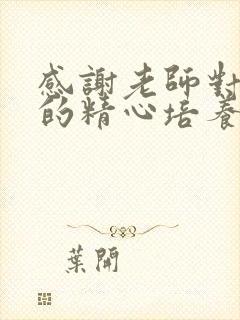 感謝老師對
的精心培養
葉開